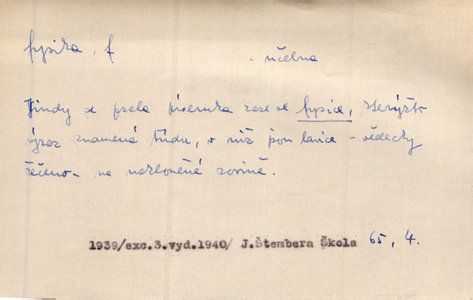 fysika, f
učebna
Jindy se psala písemka zase ve fysice, kterýžto
výraz znamená třídu, v níž jsou lavice - vědecky
řečeno - na nakloněné rovině.
1939/exc.3.vyd.1940/ J.Štembera Škola 65, 4.